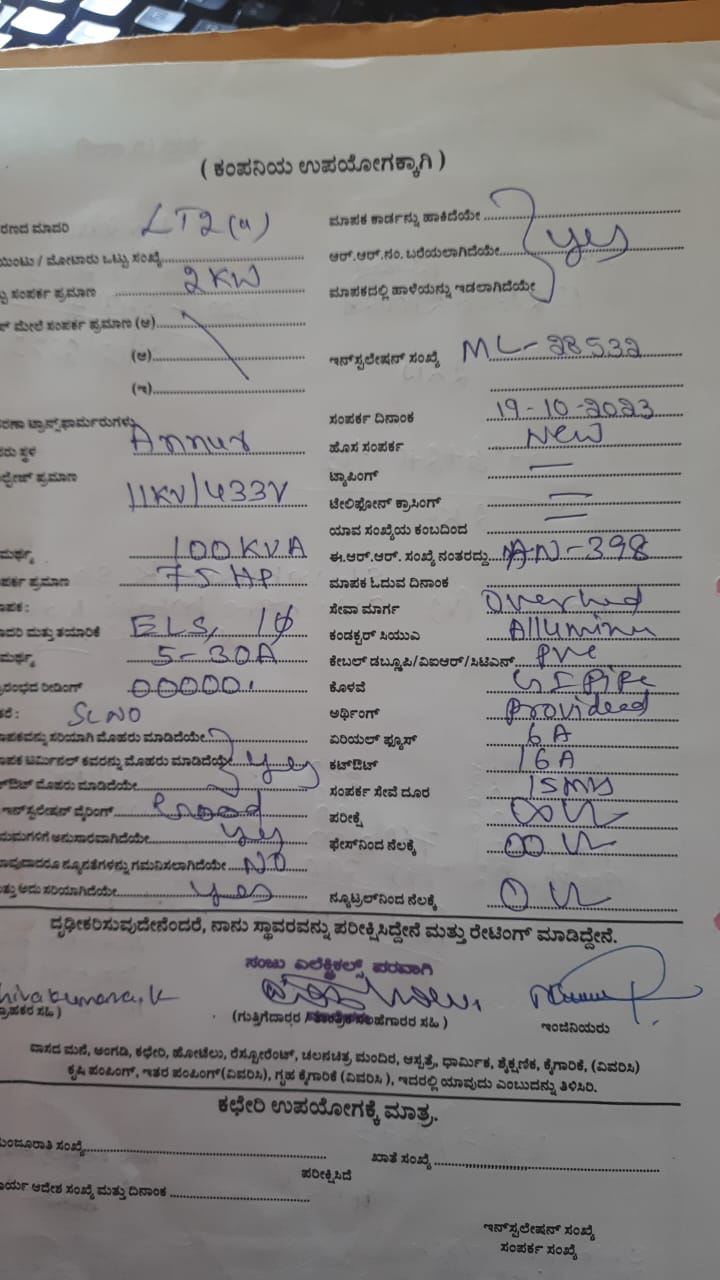 ( ಕಂಪನಿಯ ಉಪಯೋಗಕ್ಕಾಗಿ )
ರಣದ ಮಾದರಿ LT2(a)
ಯಿಂಟು / ಮೋಟಾರು ಒಟ್ಟು ಸಂಖ್ಯೆ
ಟ್ಟು ಸಂಪರ್ಕ ಪ್ರಮಾಣ 2KW
ಮೇಲೆ ಸಂಪರ್ಕ ಪ್ರಮಾಣ (ಅ)
(ಆ)
(ಇ)
ರಣಾ ಟ್ರಾನ್ಸ್‌ಫಾರ್ಮರುಗಳು
ಸ್ಥಳ Annur
ಪ್ರಮಾಣ
11KV/433V
ಮರ್ಥ್ಯ 100KVA
ಪರ್ಕ ಪ್ರಮಾಣ 75HP
ಾಪಕ :
ಾದರಿ ಮತ್ತು ತಯಾರಿಕೆ ELS, 1ϕ
ಮರ್ಥ್ಯ 5-30A
ರಂಭದ ರೀಡಿಂಗ್ 00000.
ಕರೆ : SLNO
ಾಪಕವನ್ನು ಸರಿಯಾಗಿ ಮೊಹರು ಮಾಡಿದೆಯೇ
ಾಪಕ ಟರ್ಮಿನಲ್ ಕವರನ್ನು ಮೊಹರು ಮಾಡಿದೆಯೇ yes
ಔಟ್ ಮೊಹರು ಮಾಡಿದೆಯೇ
ಇನ್‌ಸ್ಟಲೇಷನ್ ವೈರಿಂಗ್ Good
ಯಮಗಳಿಗೆ ಅನುಸಾರವಾಗಿದೆಯೇ yes
ಾವುದಾದರೂ ನ್ಯೂನತೆಗಳನ್ನು ಗಮನಿಸಲಾಗಿದೆಯೇ NO
ತ್ತು ಅದು ಸರಿಯಾಗಿದೆಯೇ yes
ಮಾಪಕ ಕಾರ್ಡನ್ನು ಹಾಕಿದೆಯೇ
ಆರ್.ಆರ್.ನಂ. ಬರೆಯಲಾಗಿದೆಯೇ yes
ಮಾಪಕದಲ್ಲಿ ಹಾಳೆಯನ್ನು ಇಡಲಾಗಿದೆಯೇ
ಇನ್‌ಸ್ಟಲೇಷನ್ ಸಂಖ್ಯೆ ML-28532
ಸಂಪರ್ಕ ದಿನಾಂಕ 19-10-2023
ಹೊಸ ಸಂಪರ್ಕ New
ಟ್ಯಾಪಿಂಗ್ —
ಟೇಲಿಫೋನ್ ಕ್ರಾಸಿಂಗ್ —
ಯಾವ ಸಂಖ್ಯೆಯ ಕಂಬದಿಂದ —
ಈ.ಆರ್.ಆರ್. ಸಂಖ್ಯೆ ನಂತರದ್ದು AN-398
ಮಾಪಕ ಓದುವ ದಿನಾಂಕ
ಸೇವಾ ಮಾರ್ಗ Overhed
ಕಂಡಕ್ಟರ್ ಸಿಯುಎ Alluminu
ಕೇಬಲ್ ಡಬ್ಲೂಪಿ/ವಿಐಆರ್/ಸಿಟಿಎಸ್ pvc
ಕೊಳವೆ GI Pipe
ಅರ್ಥಿಂಗ್ Provideed
ಏರಿಯಲ್ ಫ್ಯೂಸ್ 6A
ಕಟ್‌ಔಟ್ 16A
ಸಂಪರ್ಕ ಸೇವೆ ದೂರ 15mts
ಪರೀಕ್ಷೆ
ಫೇಸ್‌ನಿಂದ ನೆಲಕ್ಕೆ
ನ್ಯೂಟ್ರಲ್‌ನಿಂದ ನೆಲಕ್ಕೆ
ದೃಢೀಕರಿಸುವುದೇನೆಂದರೆ, ನಾನು ಸ್ಥಾವರವನ್ನು ಪರೀಕ್ಷಿಸಿದ್ದೇನೆ ಮತ್ತು ರೇಟಿಂಗ್ ಮಾಡಿದ್ದೇನೆ.
ಸಂಜು ಎಲೆಕ್ಟ್ರಿಕಲ್ಸ್ ಪರವಾಗಿ
hivakumara.K
ಗ್ರಾಹಕರ ಸಹಿ )
(ಗುತ್ತಿಗೆದಾರರ / ಸಹಿ )
ಇಂಜಿನಿಯರು
ವಾಸದ ಮನೆ, ಅಂಗಡಿ, ಕಛೇರಿ, ಹೋಟೆಲು, ರೆಸ್ಟೋರೆಂಟ್, ಚಲನಚಿತ್ರ ಮಂದಿರ, ಆಸ್ಪತ್ರೆ, ಧಾರ್ಮಿಕ, ಶೈಕ್ಷಣಿಕ, ಕೈಗಾರಿಕೆ, (ವಿವರಿಸಿ)
ಕೃಷಿ ಪಂಪಿಂಗ್, ಇತರ ಪಂಪಿಂಗ್ (ವಿವರಿಸಿ), ಗೃಹ ಕೈಗಾರಿಕೆ (ವಿವರಿಸಿ ), ಇದರಲ್ಲಿ ಯಾವುದು ಎಂಬುದನ್ನು ತಿಳಿಸಿರಿ.
ಕಛೇರಿ ಉಪಯೋಗಕ್ಕೆ ಮಾತ್ರ.
ಮಂಜೂರಾತಿ ಸಂಖ್ಯೆ
ಖಾತೆ ಸಂಖ್ಯೆ
ಪರೀಕ್ಷಿಸಿದೆ
ಾರ್ಯ ಆದೇಶ ಸಂಖ್ಯೆ ಮತ್ತು ದಿನಾಂಕ
ಇನ್‌ಸ್ಟಲೇಷನ್ ಸಂಖ್ಯೆ
ಸಂಪರ್ಕ ಸಂಖ್ಯೆ